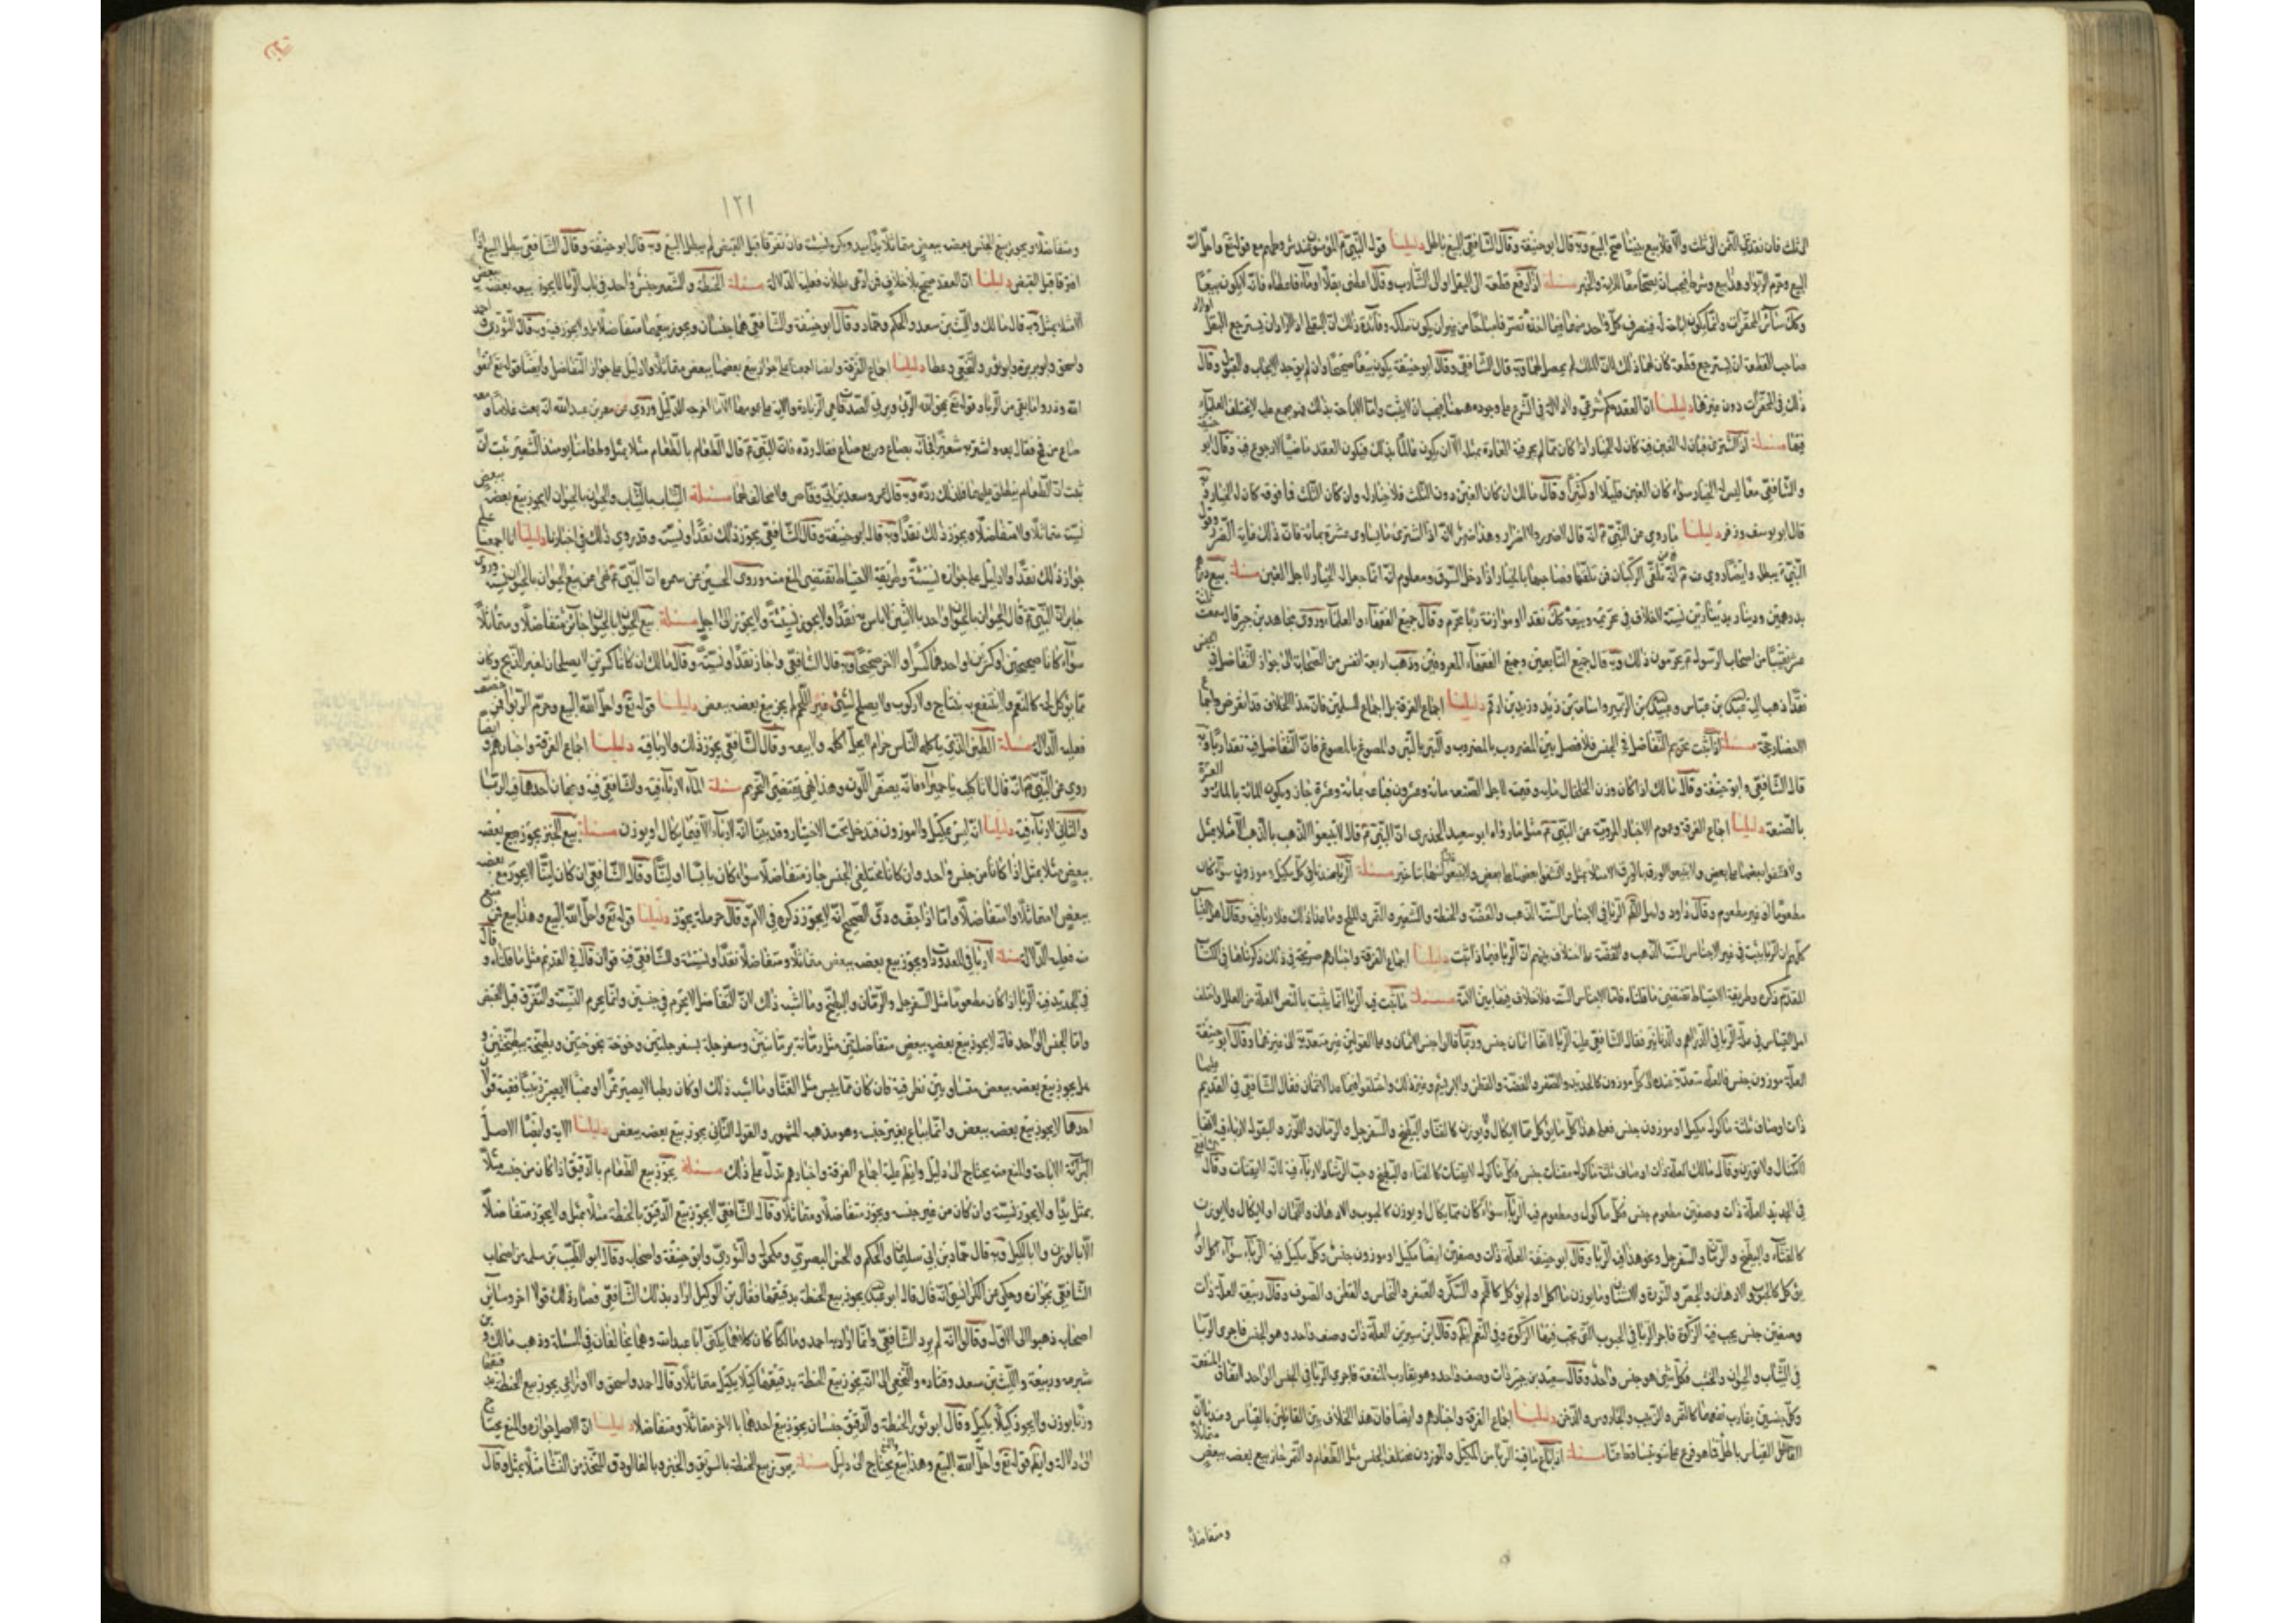 الى ثلث فان نقد في الثمن الى ثلث والا فلا بيع بيننا صح البيع وبه قال ابو حنيفة وقال الشافعي البيع باطل دليلنا قوله النبي المؤمنون عند شروطهم مع قوله تع واحل الله
البيع وحرم الربوا وهذا بيع وشرط فيجب ان يصحا معا للاية والخبر مسئلة اذا دفع قطعة الى البقلي او الى الشارب وقال اعطني بقلا او ماء فاعطاه فانه لا يكون بيعا
وكذلك سائر المحقرات وانما يكون اباحة له فيتصرف كل واحد منهما فيما اخذه تصرفا مباحا من غير ان يكون ملكه وفائدة ذلك ان البقلي اذا اراد ان يسترجع البقل او اراد
صاحب القطعة ان يسترجع قطعته كان لهما ذلك لان الملك لم يحصل لهما وبه قال الشافعي وقال ابو حنيفة يكون بيعا صحيحا وان لم يوجد الايجاب والقبول وقال
ذلك في المحقرات دون غيرها دليلنا ان العقد حكم شرعي ولا دلالة في الشرع على وجوده ههنا فيجب ان لا يثبت واما الاباحة بذلك فهو مجمع عليه لا يختلف العلماء
فيها مسئلة اذا اشترى فبان له الغبن فيه كان له الخيار اذا كان مما لم يجر في العادة بمثله الا ان يكون عالما بذلك فيكون العقد ماضيا لا رجوع فيه وقال ابو حنيفة
والشافعي معا ليس له الخيار سواء كان الغبن قليلا او كثيرا وقال مالك ان كان الغبن دون الثلث فلا خيار له وان كان الثلث فما فوقه كان له الخيار وبه
قال ابو يوسف وزفر دليلنا ما روي عن النبي انه قال لا ضرر ولا اضرار وهذا ضرر لانه اذا اشترى ما يساوي عشرة بمائة فان ذلك غاية الضرر وقول
النبي يبطله وايضا روي عنه انه نهى عن تلقي الركبان فمن تلقاها فصاحبها بالخيار اذا دخل السوق ومعلوم انه انما جعل له الخيار لاجل الغبن مسئلة بيع درهم
بدرهمين ودينار بدينارين نسية لا خلاف في تحريمه وبيعه كذلك نقدا او موازنة ربا محرم وقال جميع الفقهاء والعلماء وروى مجاهد بن جبر قال سمعت ثلثة
عشر نفسا من اصحاب الرسول يحرمون ذلك وبه قال جميع التابعين وجميع الفقهاء المعروفين وذهب اربعة انفس من الصحابة الى جواز التفاضل في الجنس
نقدا ذهب اليه عبد الله بن عباس وعبد الله بن الزبير واسامة بن زيد وزيد بن ارقم دليلنا اجماع الفرقة بل اجماع المسلمين فان هذا الخلاف قد انقرض واجمع
الاعصار عليه مسئلة اذا ثبت تحريم التفاضل في الجنس فلا فصل بين المضروب بالمضروب والتبر بالتبر والمصوغ بالمصوغ فان التفاضل فيه نقدا ربا وبه
قال الشافعي وابو حنيفة وقال مالك اذا كان وزن الخلخال مائة وقيمته لاجل الصنعة مائة وعشرون فباعه بمائة وعشرة جاز ويكون المائة بالمائة والعشرة
بالصنعة دليلنا اجماع الفرقة وعموم الاخبار المروية عن النبي مثل ما رواه ابو سعيد الخدري ان النبي قال لا تبيعوا الذهب بالذهب الا مثلا بمثل
ولا تشفوا بعضها على بعض ولا تبيعوا الورق بالورق الا مثلا بمثل ولا تشفوا بعضها على بعض ولا تبيعوا غائبا منها بناجز مسئلة الربا عندنا في كل مكيل وموزون سواء كان
مطعوما او غير مطعوم وقال داود واهل الظاهر الربا في الاجناس الستة الذهب والفضة والحنطة والشعير والتمر والملح وما عدا ذلك فلا ربا فيه وقال اهل القياس
كلهم ان الربا يثبت في غير الاجناس الستة الذهب والفضة على اختلاف بينهم ان الربا فيما ذا ثبت دليلنا اجماع الفرقة واخبارهم صريحة في ذلك ذكرناها في الكتاب
المقدم ذكره وطريقة الاحتياط تقتضي ما قلناه فاما الاجناس الستة فلا خلاف فيها بين الامة مسئلة ما ثبت فيه الربا انما يثبت بالنص لا لعلة من العلل واختلف
اهل القياس في علة الربا في الدراهم والدنانير فقال الشافعي علة الربا انها اثمان جنس وربما قالوا جنس الاثمان وعلى القولين غير متعدية الى غيرهما وقال ابو حنيفة
العلة موزون جنس فالعلة متعدية عنده الى كل موزون كالحديد والصفر والفضة والقطن والابريسم وغير ذلك واختلفوا فيما عدا الاثمان فقال الشافعي في القديم
ذات اوصاف ثلثة مأكول مكيل او موزون جنس فعلى هذا كل ما يؤكل مما لا يكال ولا يوزن كالقثاء والبطيخ والسفرجل والرمان واللوز والبقول لا ربا فيه
وقال مالك العلة ذات اوصاف ثلثة مأكول مقتات جنس فكل مأكول لا يقتات كالقثاء والبطيخ وحب الرشاد لا ربا فيه لانه لا يقتات وقال الشافعي
في الجديد العلة ذات وصفين مطعوم جنس فكل مأكول ومطعوم فيه الربا سواء كان مما يكال او يوزن كالحبوب والادهان واللحمان او لا يكال ولا يوزن
كالقثاء والبطيخ والرمان والسفرجل ونحو هذا فيه الربا وقال ابو حنيفة العلة ذات وصفين ايضا مكيل او موزون جنس وكل مكيل فيه الربا سواء اكل او لم
يؤكل كالحبوب والادهان والجص والنورة والاشنان وما يوزن ما اكل او لم يؤكل كاللحم والسكر والصفر والنحاس والقطن والصوف وقال ربيعة العلة ذات
وصفين جنس يجب فيه الزكوة فاجرى الربا في الحبوب التي تجب فيها الزكوة وفي النعم ايضا وقال ابن سيرين العلة ذات وصف واحد وهو الجنس فاجرى الربا
في الثياب والحيوان والخشب فكل شئ هو جنس واحد وقال سعيد بن جبير ذات وصف واحد وهو تقارب المنفعة فاجرى الربا في الجنس الواحد لاتفاق المنفعة
وكل جنسين يتقارب نفعهما كالتمر والزبيب والجاورس والدخن دليلنا اجماع الفرقة واخبارهم وايضا فان هذا الخلاف بين القائلين بالقياس وعندنا ان
القول بالقياس باطل فما هو فرع عليه مسئلة اذا باع ما فيه الربا من المكيل والموزون مختلف الجنس مثل الطعام والتمر جاز بيع بعضه ببعض متماثلا
ومتفاضلا
١٢١
ومتفاضلا ويجوز بيع الجنس بعضه ببعض متماثلا يدا بيد ويكره نسية فان تفرقا قبل القبض لم يبطل البيع وبه قال ابو حنيفة وقال الشافعي يبطل البيع اذا
افترقا قبل القبض دليلنا ان العقد صحيح بلا خلاف فمن ادعى بطلانه فعليه الدلالة مسئلة الحنطة والشعير جنس واحد في باب الربا لا يجوز بيعه بعضه ببعض
الا مثلا بمثل وبه قال مالك والليث بن سعد والحكم وحماد وقال ابو حنيفة والشافعي هما جنسان ويجوز بيعهما متفاضلا يدا ولا يجوز نسية وبه قال الثوري واحمد
واسحق وابو ثور والنخعي وعطا دليلنا اجماع الفرقة وايضا اجمعنا على جواز بيع بعضها ببعض متماثلا ولا دليل على جواز التفاضل وايضا قوله تع اتقوا
الله وذروا ما بقي من الربا وقوله تع يمحق الله الربوا ويربي الصدقات والربا الزيادة والاية على عمومها الا ما اخرجه الدليل وروي عن معمر بن عبد الله انه بعث غلاما ومعه
صاع من قمح فقال بعه واشتر به شعيرا فجاءه بصاع وربع صاع فقال رده فان النبي قال الطعام بالطعام مثلا بمثل وطعامنا يومئذ الشعير ثبت ان
ثبت ان الطعام ينطلق عليهما فلذلك رده وبه قال عمر وسعد بن ابي وقاص ولا مخالف لهما مسئلة الثياب بالثياب والحيوان بالحيوان لا يجوز بيع بعضه ببعض
نسية متماثلا ولا متفاضلا ويجوز ذلك نقدا وبه قال ابو حنيفة وقال الشافعي يجوز ذلك نقدا ونسية وقد روي ذلك في اخبارنا دليلنا انا اجمعنا على
جواز ذلك نقدا ولا دليل على جوازه نسيئة وطريقة الاحتياط تقتضي المنع منه وروى الحسن عن سمرة ان النبي نهى عن بيع الحيوان بالحيوان نسية وروى
جابر ان النبي قال الحيوان بالحيوان واحد بالاثنين لا باس به نقدا ولا يجوز نسيئة ولا يجوز الى اجل مسئلة بيع الحيوان بالحيوان جائز متفاضلا ومتماثلا
سواء كانا صحيحين او كسيرين او احدهما كسيرا والاخر صحيحا وبه قال الشافعي واجاز نقدا ونسية وقال مالك ان كانا كسيرين لا يصلحان لغير الذبح وكان
مما يؤكل لحمه كالنعم ولا ينتفع به بنتاج ولا ركوب ولا يصلح لشئ غير اللحم لم يجز بيع بعضه ببعض دليلنا قوله تع واحل الله البيع وحرم الربوا فمن خصصه
فعليه الدلالة مسئلة الطين الذي ياكله الناس حرام لا يحل اكله ولا بيعه وقال الشافعي يجوز ذلك ولا ربا فيه دليلنا اجماع الفرقة واخبارهم وايضا
روي عن النبي انه قال لا تاكليه يا حميراء فانه يصفر اللون وهذا نهي يقتضي التحريم مسئلة الماء لا ربا فيه وللشافعي فيه وجهان احدهما فيه الربا
والثاني لا ربا فيه دليلنا انه ليس بمكيل ولا موزون فيدخل تحت الاخبار وقد بينا انه لا ربا الا فيما يكال او يوزن مسئلة بيع الخبز يجوز بيع بعضه
ببعض مثلا بمثل اذا كانا من جنس واحد وان كانا مختلفي الجنس جاز متفاضلا سواء كان يابسا او لينا وقال الشافعي ان كان لينا لا يجوز بيع بعضه
ببعض لا متماثلا ولا متفاضلا واما اذا جف ودق الصحيح انه لا يجوز ذكره في الام وقال حرملة يجوز دليلنا قوله تع واحل الله البيع وهذا بيع فمن منع
منه فعليه الدلالة مسئلة لا ربا في المعدودات ويجوز بيع بعضه ببعض متماثلا ومتفاضلا نقدا ونسية وللشافعي فيه قولان قال في القديم مثل ما قلناه وقال
في الجديد فيه الربا اذا كان مطعوما مثل السفرجل والرمان والبطيخ وما اشبه ذلك لان التفاضل لا يحرم في جنسين وانما يحرم النسية والتفرق قبل القبض
واما الجنس الواحد فانه لا يجوز بيع بعضه ببعض متفاضلين مثل رمانة برمانتين وسفرجلة بسفرجلتين وخوخة بخوختين وبطيخة ببطيختين و
هل يجوز بيع بعضه ببعض متساويين نظر فيه فان كان مما ييبس مثل القثاء وما اشبه ذلك او كان رطبا لا يصير تمرا او عنبا لا يصير زبيبا ففيه قولان
احدهما لا يجوز بيع بعضه ببعض وانما يباع بغير جنسه وهو مذهبه المشهور والقول الثاني يجوز بيع بعضه ببعض دليلنا الاية وايضا الاصل
الاباحة والمنع منه يحتاج الى دليل وايضا عليه اجماع الفرقة واخبارهم تدل على ذلك مسئلة يجوز بيع الطعام بالدقيق اذا كان من جنسه مثلا
بمثل يدا ولا يجوز نسية وان كان من غير جنسه ويجوز متفاضلا ومتماثلا وقال الشافعي لا يجوز بيع الدقيق بالحنطة مثلا بمثل ولا يجوز متفاضلا
لا بالوزن ولا بالكيل وبه قال حماد بن ابي سليمان والحكم والحسن البصري ومكحول والثوري وابو حنيفة واصحابه وقال ابو الطيب بن سلمة من اصحاب
الشافعي بجوازه وحكي عن الكرابيسي انه قال قال ابو عبد الله يجوز بيع الحنطة بدقيقها فقال ابن الوكيل اراد بذلك الشافعي فصار ذلك قولا اخر وسائر
اصحابه ذهبوا الى الاول وقالوا انه لم يرد الشافعي وانما اراد به احمد ومالكا كان كلاهما يكنى ابا عبد الله وهما يخالفان في المسئلة وذهب مالك وبن
شبرمة وربيعة والليث بن سعد وقتادة والنخعي الى انه يجوز بيع الحنطة بدقيقها كيلا بكيل متماثلا وقال احمد واسحق والاوزاعي يجوز بيع الحنطة بدقيقها
وزنا بوزن ولا يجوز كيلا بكيل وقال ابو ثور الحنطة والدقيق جنسان يجوز بيع احدهما بالاخر متماثلا ومتفاضلا دليلنا ان الاصل جوازه والمنع يحتاج
الى دلالة وايضا قوله تع واحل الله البيع وهذا بيع والمنع يحتاج الى دليل مسئلة يجوز بيع الحنطة بالسويق والخبز وبالفالوذق المتخذ من النشا مثلا بمثل وقال